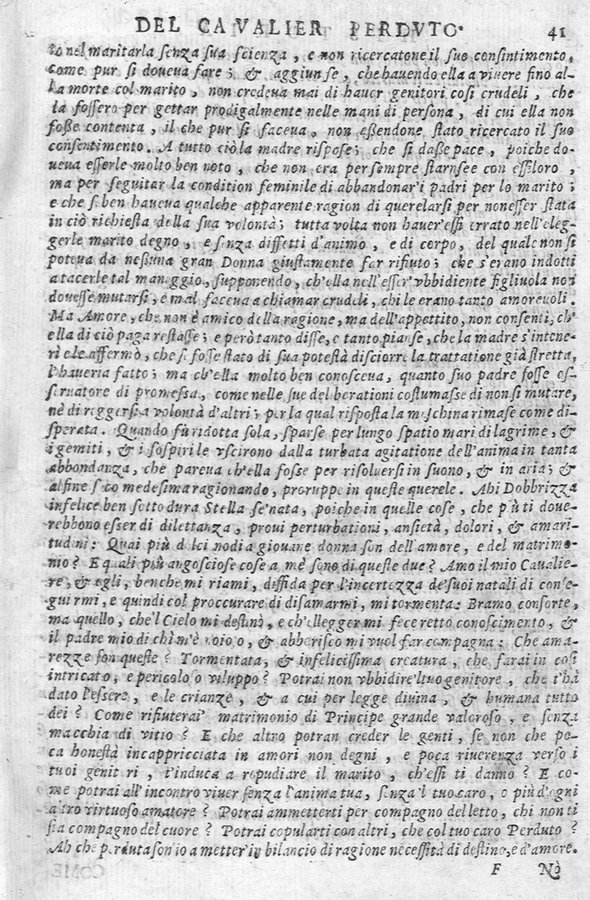 DEL CAVALIER PERDVTO. 41
to nel maritarla senza sua scienza, e non ricercatone il suo consintimento,
come pur si doveua fare; & aggiunse, che hauendo ella a viuere fino al-
la morte col marito, non credeua mai di hauer genitori così crudeli, che
la fossero per gettar prodigalmente nelle mani di persona, di cui ella non
fosse contenta, il che pur si faceua, non essendone stato ricercato il suo
consentimento. A tutto ciò la madre rispose; che si dasse pace, poiche do-
ueua esserle molto ben noto, che non era per sempre starsene con essiloro,
ma per seguitar la condition feminile di abbandonar'i padri per lo marito;
e che se ben haueua qualche apparente ragion di querelarsi per nonesser stata
in ciò richiesta della sua volontà; tutta volta non hauer'essi errato nell'eleg-
gerle marito degno, e senza diffetti d'animo, e di corpo, del quale non si
poteua da nessuna gran Donna giustamente far rifiuto; che s'erano indotti
a tacerle tal maneggio, supponendo, ch'ella nell'esser'vbbidiente figliuola non
douesse mutarsi; e mal faceua a chiamar crudeli, chi le erano tanto amoreuoli.
Ma Amore, che non è amico della ragione, ma dell'appettito, non consentì, ch'
ella di ciò paga restasse; e però tanto disse, e tanto pianse, che la madre s'intene-
rì e le affermò, che se fosse stato di sua potestà disciorre la trattatione già stretta,
l'haueria fatto; ma ch'ella molto ben conosceua, quanto suo padre fosse os-
seruatore di promessa, come nelle sue deliberationi costumasse di non si mutare,
nè di reggersi a volontà d'altri; per la qual risposta la meschina rimase come di-
sperata. Quando fù ridotta sola, sparse per lungo spatio mari di lagrime, &
i gemiti, & i sospiri le vscirono dalla turbata agitatione dell'anima in tanta
abbondanza, che pareua ch'ella fosse per risoluersi in suono, & in aria; &
alfine seco medesima ragionando, proruppe in queste querele. Ahi Dobbrizza
infelice ben sotto dura Stella se'nata, poiche in quelle cose, che più ti doue-
rebbono esser di dilettanza, proui perturbationi, ansietà, dolori, & amari-
tudini: Quai più dolci nodi a giouane donna son dell'amore, e del matrimo-
nio? E quali più angosciose cose a me sono di queste due? Amo il mio Caualie-
re, & egli, benche mi riami, diffida per l'incertezza de'suoi natali di conse-
guirmi, e quindi col proccurare di disamarmi, mi tormenta: Bramo consorte,
ma quello, che'l Cielo mi destinò, e ch'ellegger mi fece retto conoscimento, &
il padre mio di chi m'è noioso, & abborisco mi vuol far compagna: Che ama-
rezze son queste? Tormentata, & infelicissima creatura, che farai in così
intricato, e pericoloso viluppo? Potrai non vbbidire'l tuo genitore, che t'hà
dato l'essere, e le crianze, & a cui per legge diuina, & humana tutto
dei? Come rifiuterai matrimonio di Principe grande valoroso, e senza
macchia di vitio? E che altro potran creder le genti, se non che po-
ca honestà incappricciata in amori non degni, e poca riuerenza verso i
tuoi genitori, t'induca a repudiare il marito, ch'essi ti danno? E co-
me potrai all'incontro viuer senza l'anima tua, senza'l tuo caro, e più d'ogni
altro virtuoso amatore? Potrai ammettenti per compagno del letto, chi non ti
sia compagno del cuore? Potrai copularti con altri, che col tuo caro Perduto?
Ah che perduta son io a metter'in bilancio di ragione necessità di destino, e d'amore.
F Nò